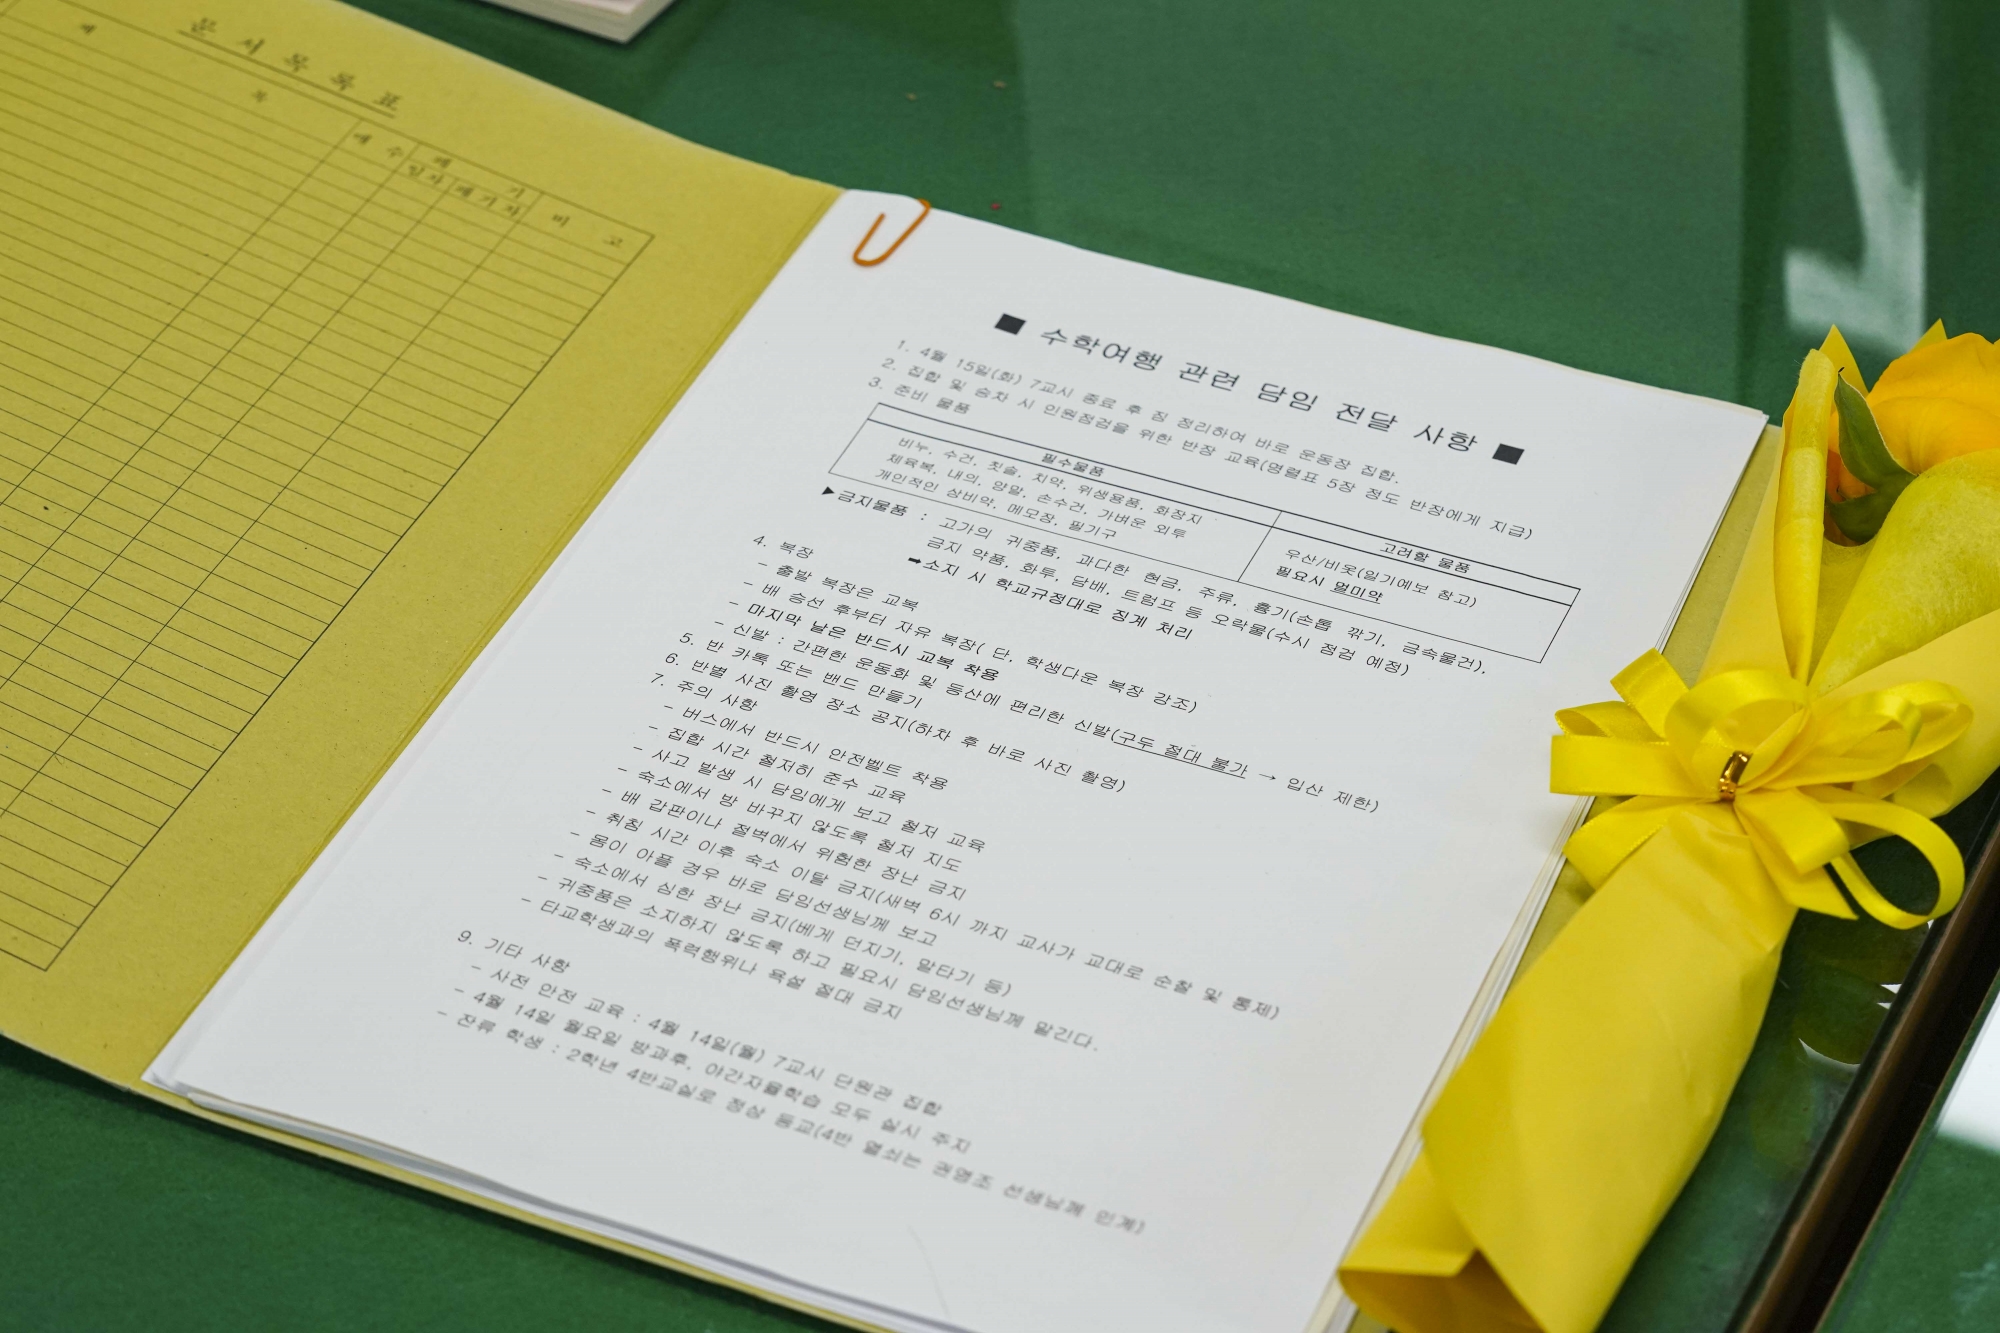 문서목록표
제 목
매 수
폐 기
일자
폐기자
비 고
■ 수학여행 관련 담임 전달 사항 ■
1. 4월 15일(화) 7교시 종료 후 짐 정리하여 바로 운동장 집합.
2. 집합 및 승차 시 인원점검을 위한 반장 교육(명렬표 5장 정도 반장에게 지급)
3. 준비 물품
필수물품
비누, 수건, 칫솔, 치약, 위생용품, 화장지
체육복, 내의, 양말, 손수건, 가벼운 외투
개인적인 상비약, 메모장, 필기구
고려할 물품
우산/비옷(일기예보 참고)
필요시 멀미약
▶금지물품 : 고가의 귀중품, 과다한 현금, 주류, 흉기(손톱 깎기, 금속물건),
금지 약품, 화투, 담배, 트럼프 등 오락물(수시 점검 예정)
➡소지 시 학교규정대로 징계 처리
4. 복장
- 출발 복장은 교복
- 배 승선 후부터 자유 복장( 단, 학생다운 복장 강조)
- 마지막 날은 반드시 교복 착용
- 신발 : 간편한 운동화 및 등산에 편리한 신발(구두 절대 불가 → 입산 제한)
5. 반 카톡 또는 밴드 만들기
6. 반별 사진 촬영 장소 공지(하차 후 바로 사진 촬영)
7. 주의 사항
- 버스에서 반드시 안전벨트 착용
- 집합 시간 철저히 준수 교육
- 사고 발생 시 담임에게 보고 철저 교육
- 숙소에서 방 바꾸지 않도록 철저 지도
- 배 갑판이나 절벽에서 위험한 장난 금지
- 취침 시간 이후 숙소 이탈 금지(새벽 6시 까지 교사가 교대로 순찰 및 통제)
- 몸이 아플 경우 바로 담임선생님께 보고
- 숙소에서 심한 장난 금지(베게 던지기, 말타기 등)
- 귀중품은 소지하지 않도록 하고 필요시 담임선생님께 맡긴다.
- 타교학생과의 폭력행위나 욕설 절대 금지
9. 기타 사항
- 사전 안전 교육 : 4월 14일(월) 7교시 단원관 집합
- 4월 14일 월요일 방과후, 야간자율학습 모두 실시 주지
- 잔류 학생 : 2학년 4반교실로 정상 등교(4반 열쇠는 권영조 선생님께 인계)